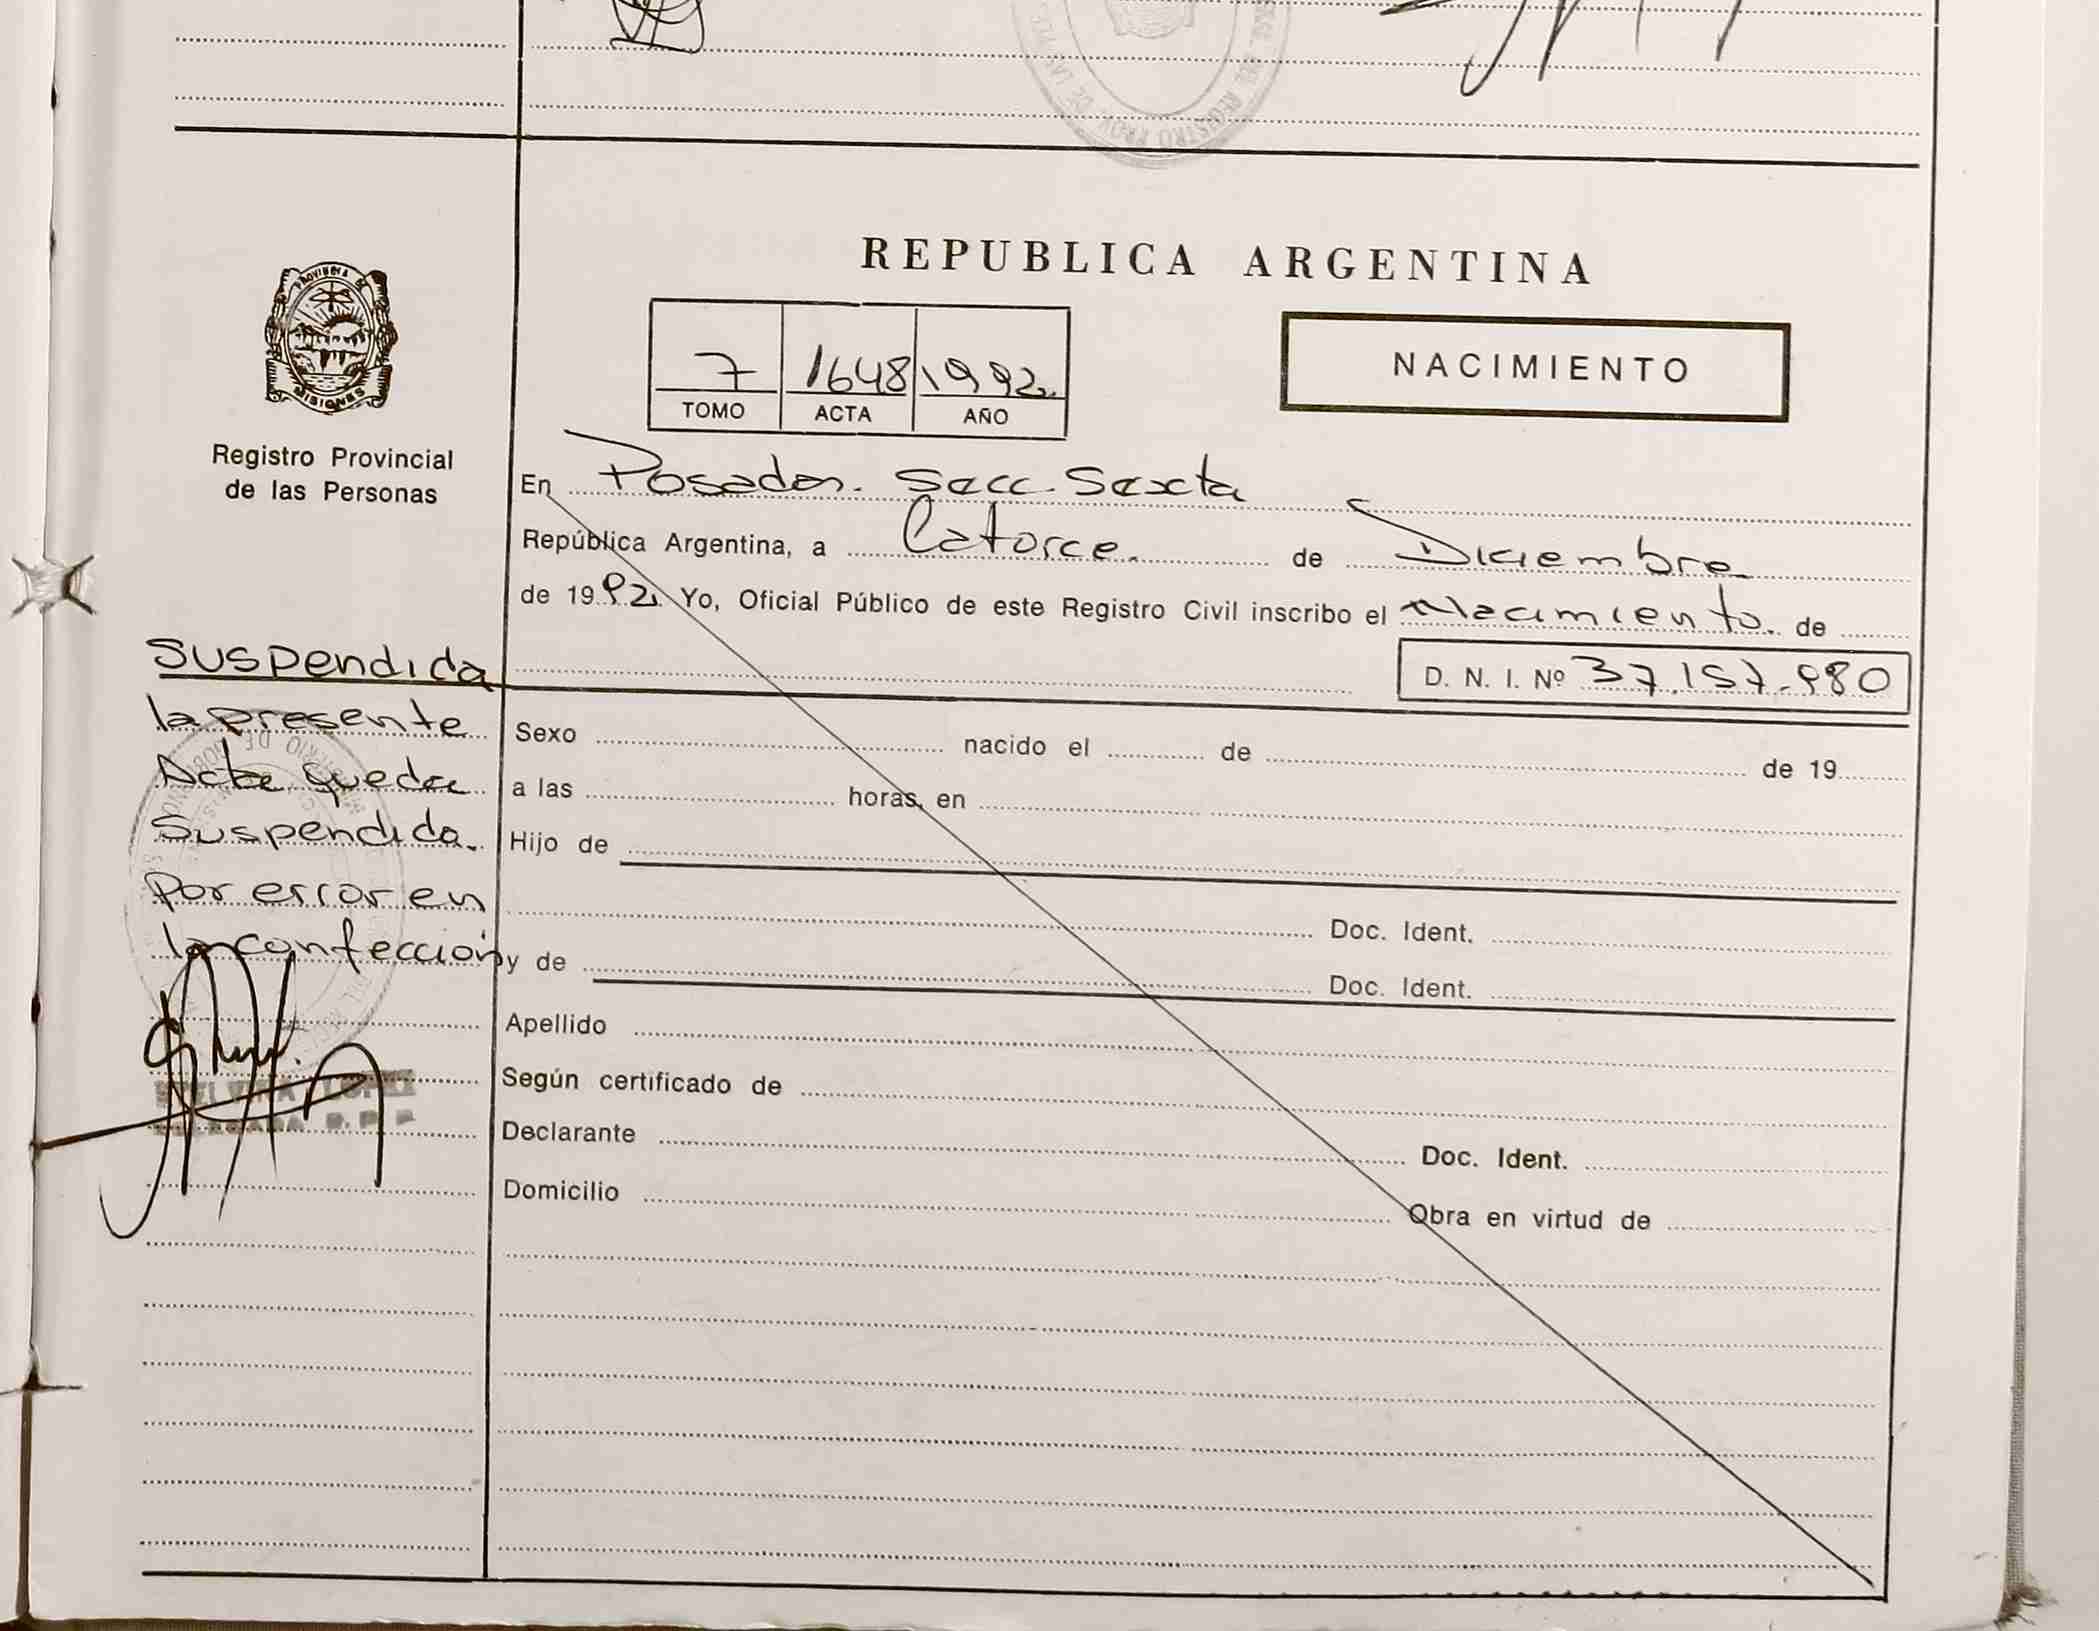 REPUBLICA ARGENTINA
PROVINCIA DE
MISIONES
Registro Provincial
de las Personas
7 1648 1992.
TOMO ACTA AÑO
NACIMIENTO
En Posadas. Secc. Sexta
República Argentina, a Catorce. de Diciembre
de 1992 Yo, Oficial Público de este Registro Civil inscribo el Nacimiento. de
D. N. I. Nº 37.157.980
Suspendida
la presente
Acta queda
Suspendida.
por error en
la confección
Sexo nacido el de de 19
a las horas, en
Hijo de
Doc. Ident.
y de Doc. Ident.
Apellido
Según certificado de
Declarante Doc. Ident.
Domicilio Obra en virtud de